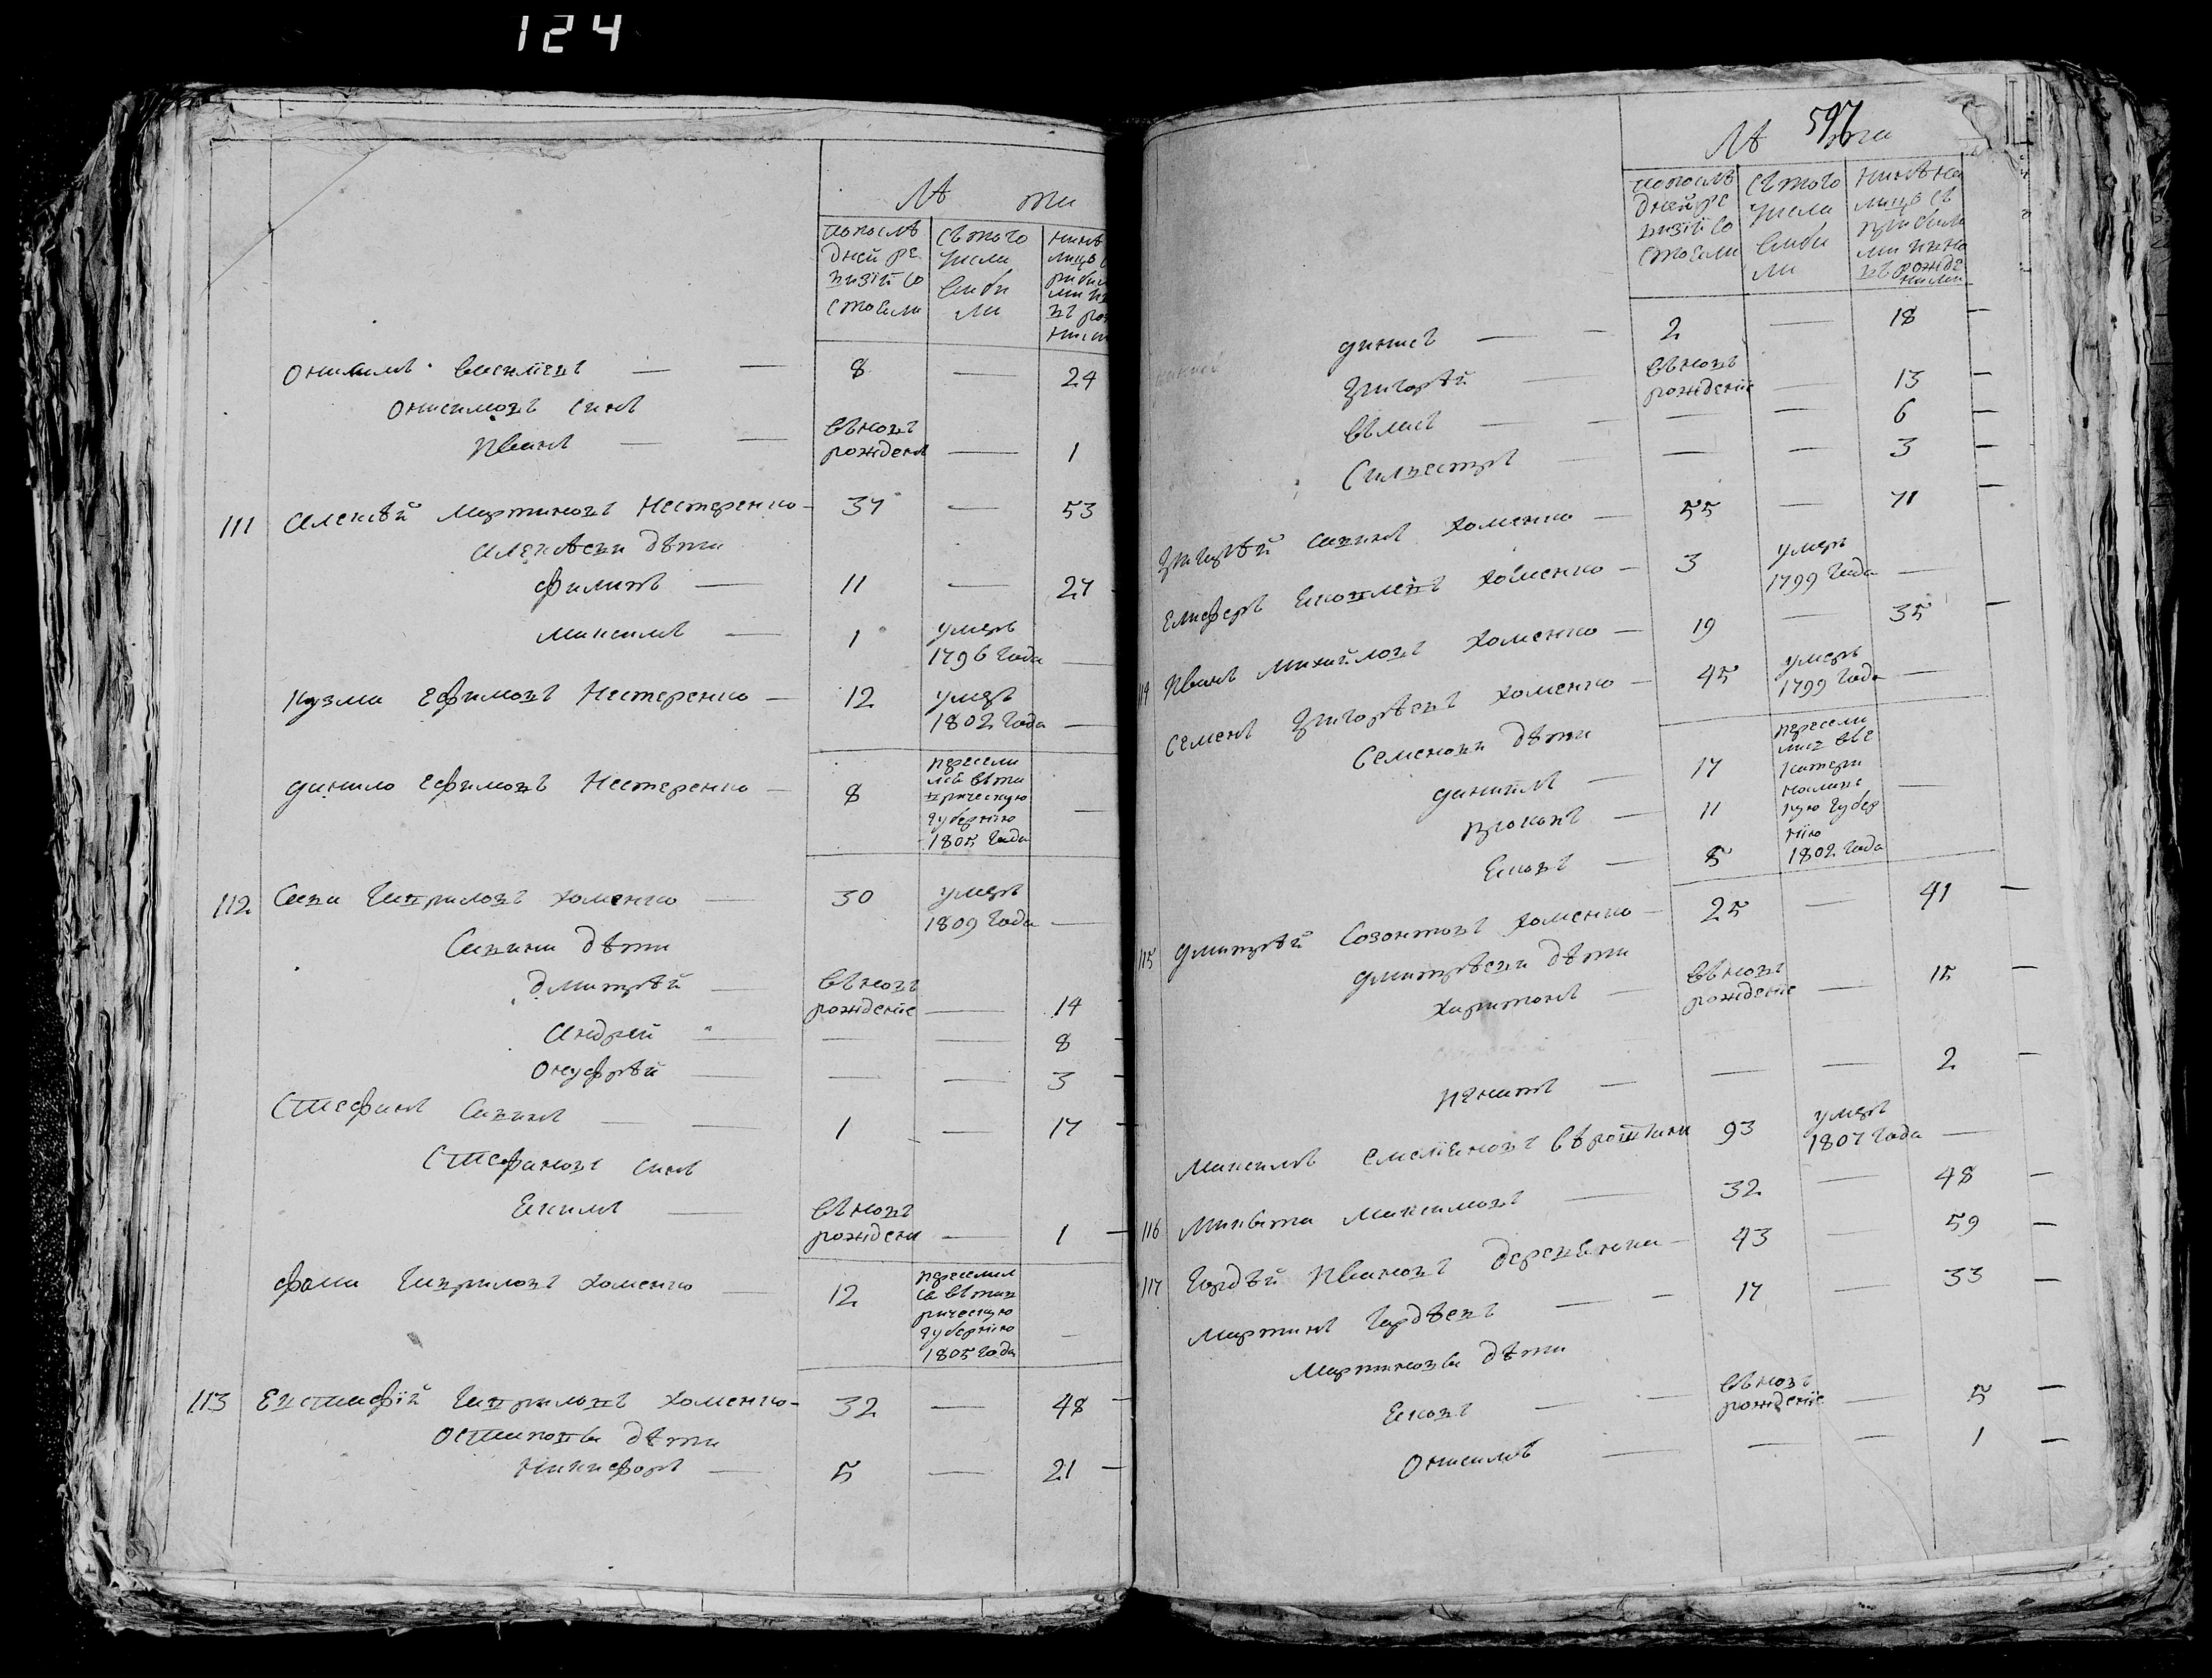 124
Лѣ ти
попослѣ
дней ре
визiй со
стояли
Съ того
числа
выбы
ли
нынѣ
Онисимъ Васильевъ — — 8 — 24
Онисимовъ сынъ
Иванъ — — въновъ
рожденъ — 1
111 Алексѣй Мартиновъ Нестеренко — 37 — 53
Алексѣеви дѣти
Филипъ — 11 — 27
Максимъ — 1 умеръ
1796 года —
Кузма Ефимовъ Нестеренко — 12 умеръ
1802 года —
Данило Ефимовъ Нестеренко — 8
пересели
лся вътав
рическую
губернiю
1805 года —
112 Сава Гавриловъ Хоменко — 30 умеръ
1809 года —
Савини дѣти
Дмитрѣй — въновъ
рожденiе — 14
Андрей — — — 8
Онуфрѣй — — — 3
Стефанъ Савинъ — — 1 — 17
Стефановъ сынъ
Екимъ — въновъ
рожден — 1
Фома Гавриловъ Хоменко — 12
переселил
ся вътав
рическую
губернiю
1805 года —
113 Евстафiй Гавриловъ Хоменко — 32 — 48
Остаповы дѣти
Никифоръ — 5 — 21
597
Лѣ ти
попослѣ
дней ре
визiй со
стояли
Съ того
числа
выбы
ли
нынѣ на
лицо съ
прибыли
ми ивно
въ рожде
ними
Денисъ — — 2 — 18
Григорѣй — въновъ
рожденiе 13
Власъ — — — — 6
Силвестръ — — — 3
Григорѣй Савинъ Хоменко — 55 — 71
Елисферъ Яковлевъ Хоменко — 3 умеръ
1799 года —
114 Иванъ Михайловъ Хоменко — 19 — 35
Семенъ Григорѣевъ Хоменко — 45 умеръ
1799 года —
Семенови дѣти
Данiилъ — 17
Прокопъ — 11
Яковъ — 5
пересели
лис въе
катери
нославс
кую губер
нiю
1802 года
115 Дмитрѣй Созонтовъ Хоменко — 25 — 41
Дмитрѣеви дѣти
Харитонъ — въновъ
рожденiе — 15
Игнатъ — — — 2
Максимъ Емелiяновъ 93 умеръ
1807 года —
116 Микита Максимовъ — 32 — 48
117 Гордѣй Ивановъ Деревянка — 43 — 59
Мартинъ Гордѣевъ — — 17 — 33
Мартиновы дѣти
Яковъ — — въновъ
рожденiе — 5
Онисимъ — — — 1